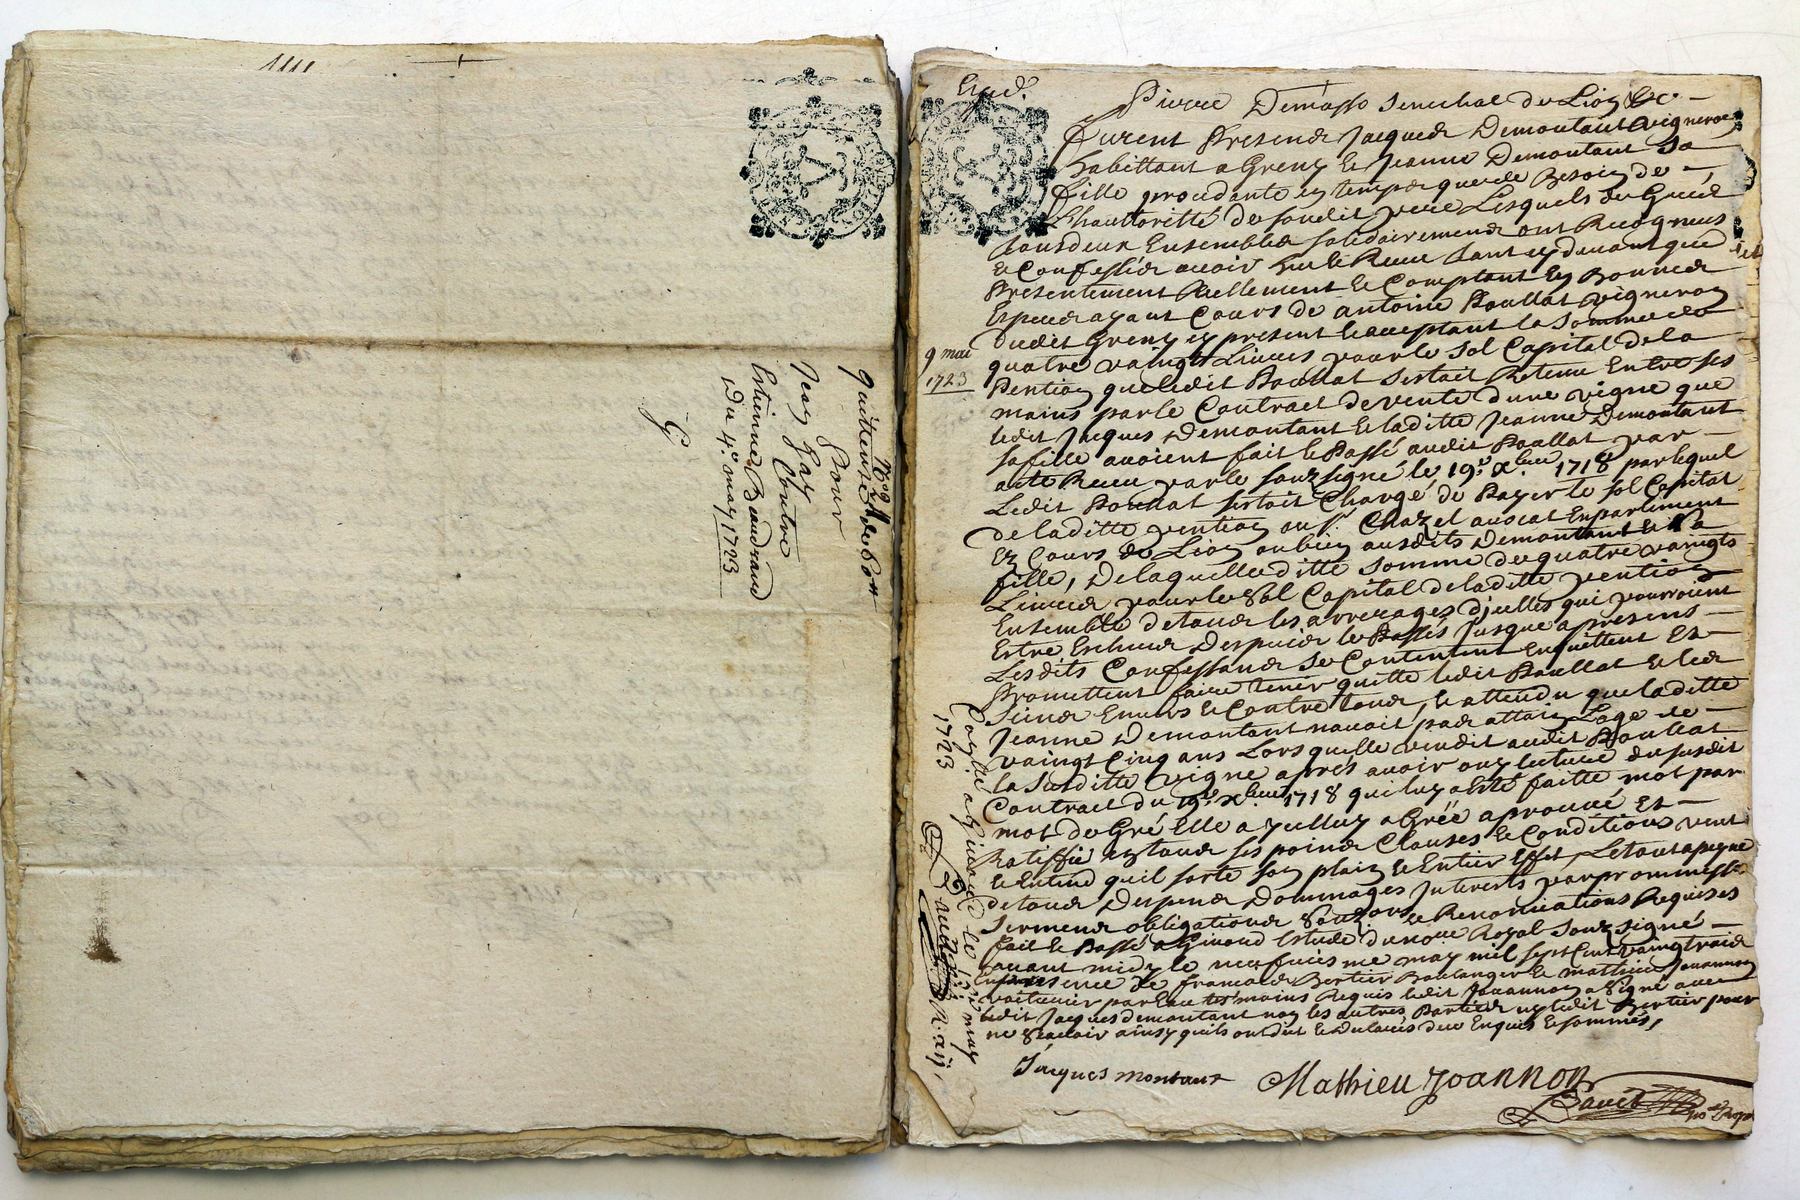 quittance de 60 ₶
N° 2
Pour
Jean Gay
Contre
Estienne Baudrand
Du 4e may 1723
G
Exped.
Pierre Demasso senechal de Lion &c
furent presends Jacques Demontant vigneron
habittant a Greny & Jeanne Demontant sa
fille procedante en temps que de besoin de
Lhauttoritté de sondit pere Lesquels de Gred
tous deux Ensembles solidairement ont Recogneus
& Confessés avoir heu & Receu tant cy devant que
presentement Reellement & Comptant en bonnes
Especes ayant Cours de antoine Boullat vigneron
dudit Greny cy present & acceptant la somme de
quatre vaingts Livres pour le sol Capital de la
Pention que ledit Boullat sestoit Retenu Entre ses
mains par le Contract de vente d'une vigne que
ledit Jacques Demontant & laditte Jeanne Demontant
sa fille avoient fait & Passé audit Boullat par
acte Receu par le souzsigné le 19e xbre 1718 par lequel
Ledit Boullat sestoit Chargé de Payer le sol Capital
de laditte pention au sr. Chazel avocat En parlement
Ez Cours de Lion ou bien ausdits Demontant & sa
fille, De laquelle ditte somme de quatre vaingts
Livres pour le sol Capital de laditte pention
Ensemble de tous les arrerages d'icelles qui pourroient
Estre Escheus Despuis le Passés Jusque a presens
Lesdits Confessands se Contentent En quittent Et
Promettent faire tenir quitte ledit Boullat & les
siens Envers & Contre tous, & attendu que laditte
Jeanne Demontant navoit pas attain Lage de
vaingt Cinq ans Lors quelle vendit audit Boullat
la susditte vigne aprés avoir ouy lecture du susdit
Contract du 19e xbre 1718 qui luy a Esté faitte mot par
mot de Gré Elle a icelluy aGréé aprouvé Et
Ratiffié en tous ses poinds Clauses & Conditions veut
& Entend quil sorte son plain & Entier Effet, Le tout a peyne
de tous Despends Dommages Interests par prommesse
serment obligations Renonciations Requises
fait & Passé a Givord Estude du noere Royal souz signé
avant midy le neufvieme may mil sept Cent vaingt trois
En presence de francois Bertier Boulanger & mathieu Joannon
voiturier par Eau tesmoins Requis ledit Joannon a signé avec
ledit Jacques demontant non les autres Parties ny ledit Bertier pour
ne scavoir ainsy quils ont dit & de ce Enquis & sommés,
Jacques montant
Mathieu Joannon
Bauet
9 mai
1723
Conlé a Givord le may
1723